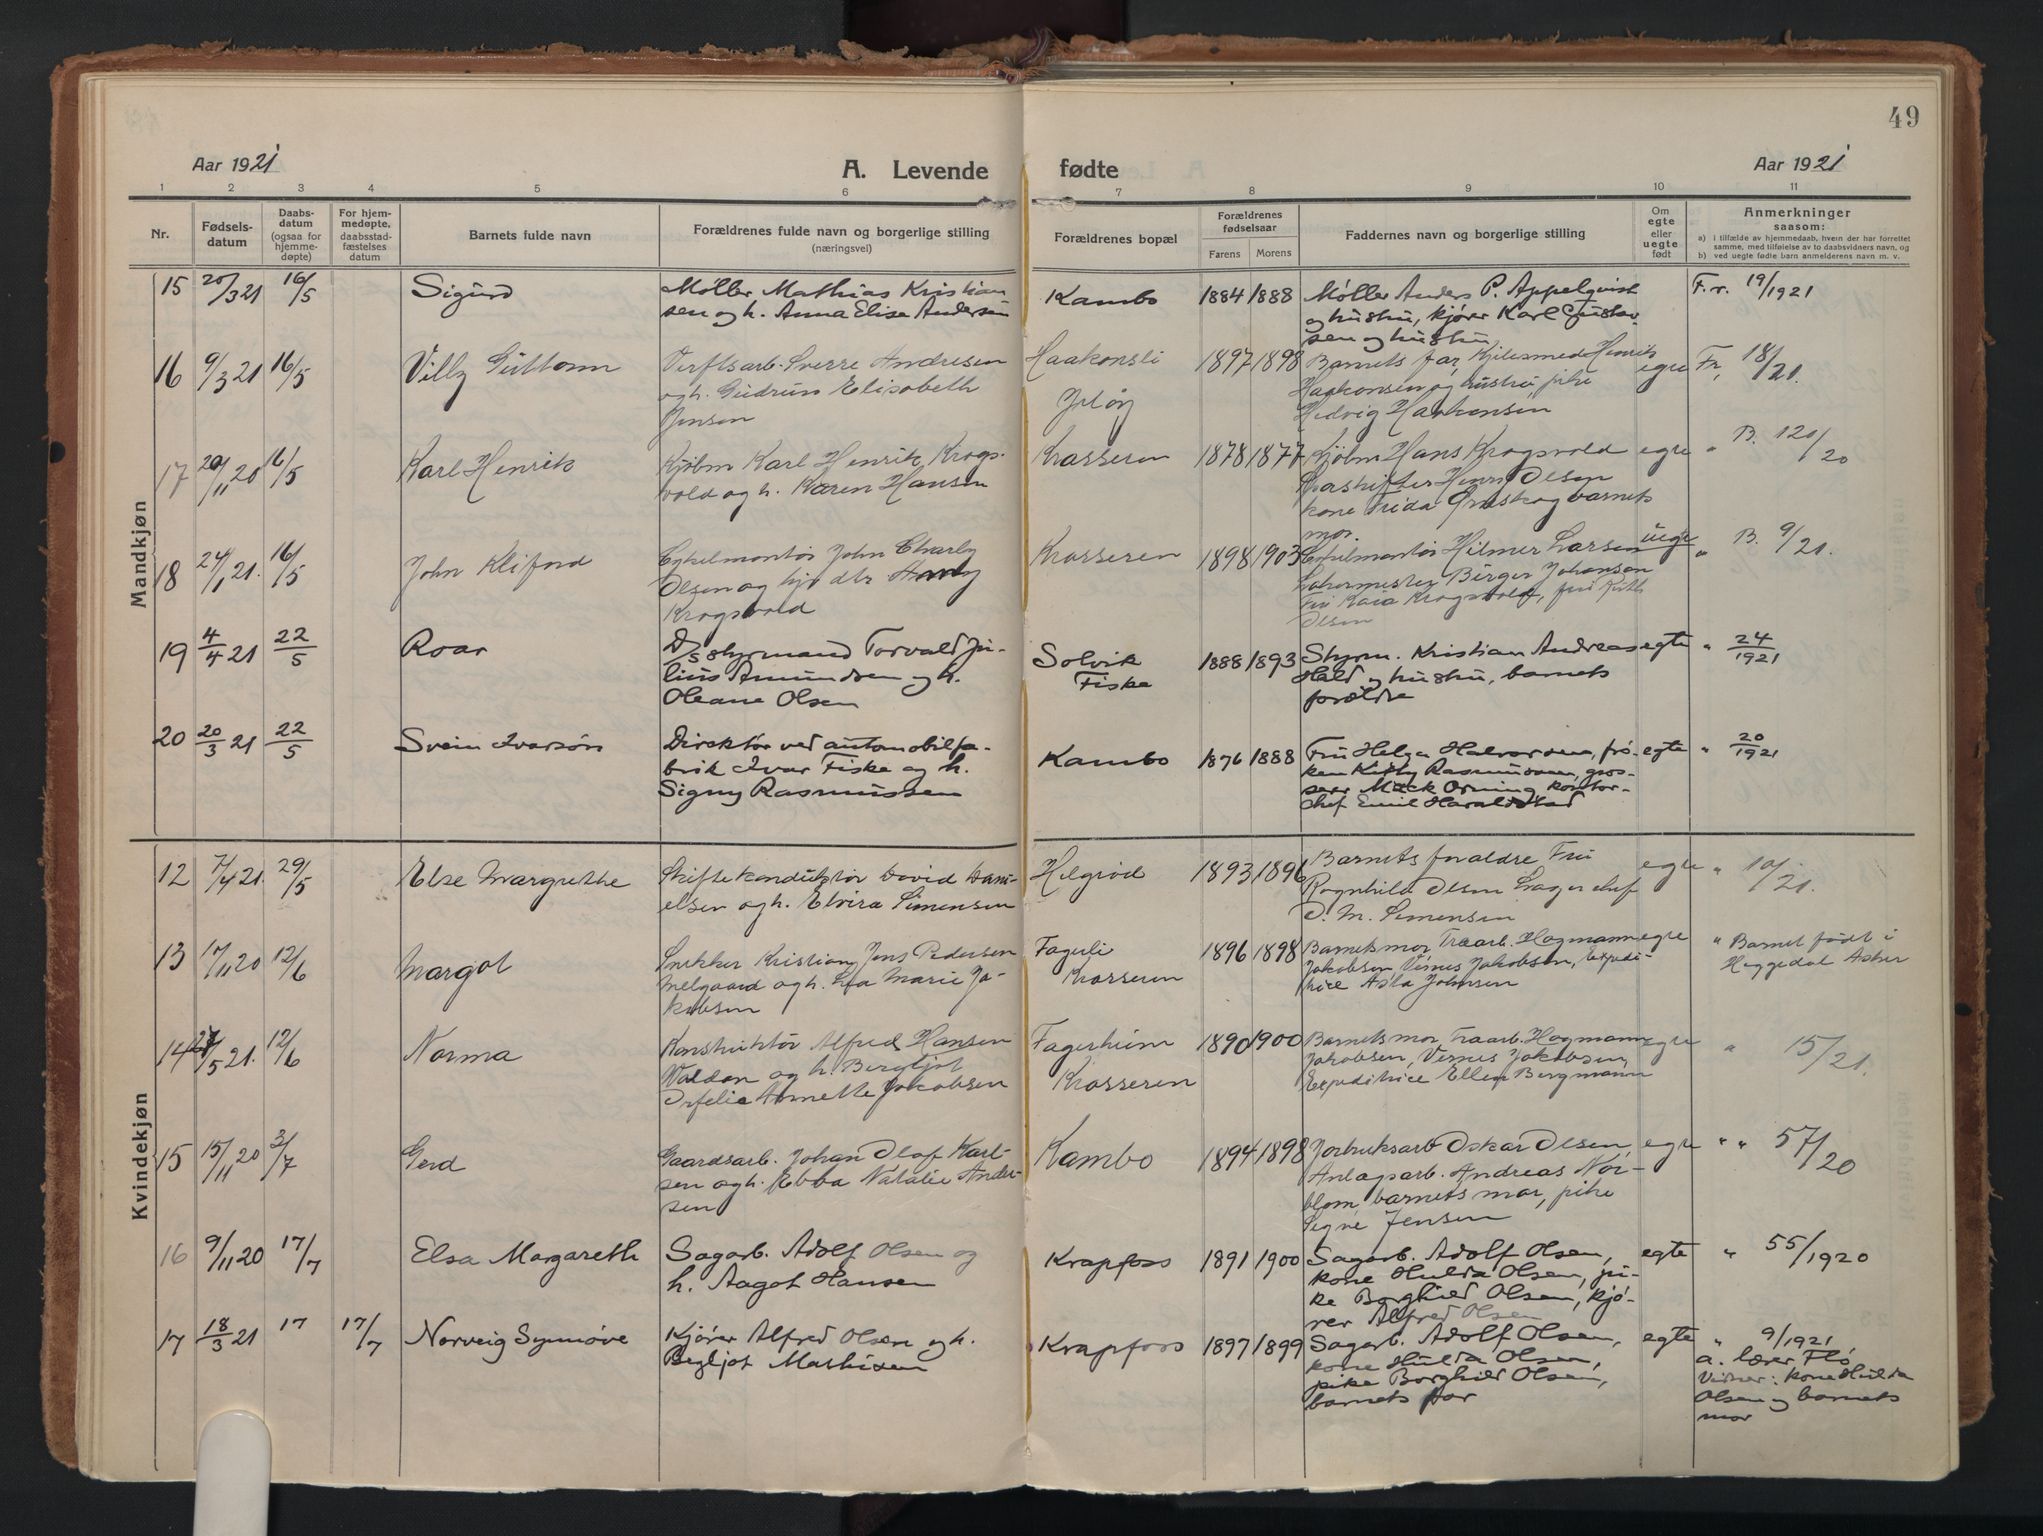 49
Aar 1921
A. Levende
fødte
Aar 1921
1 2 3 4 5 6 7 8 9 10 11
Nr.
Fødsels-
datum
Daabs-
datum
(ogsaa for
hjemme-
døpte)
For hjem-
medøpte,
daabsstad-
fæstelses
datum
Barnets fulde navn
Forældrenes fulde navn og borgerlige stilling
(næringsvei)
Forældrenes bopæl
Forældrenes
fødselsaar
Farens Morens
Faddernes navn og borgerlige stilling
Om
egte
eller
uegte
født
Anmerkninger
saasom:
a) i tilfælde av hjemmedaab, hvem der har forrettet
samme, med tilføielse av to daabsvidners navn, og
b) ved uegte fødte barn anmelderens navn m. v.
Mandkjøn
15 20/3 21 16/5 Sigurd
Møller Mathias Kristian
sen og h. Anna Elise Andersen
Kambo 1884 1888
Møller Anders P. Appelqvist
og hustru, kjører Karl Gustav-
sen og hustru
F. r. 19/1921
16 9/3 21 16/5 Villy Guttorm
Verftsarb. Sverre Andresen
og h. Gudrun Elisabeth
Jensen
Haakonsli
Jeløy
1897 1898
Barnets far, Kjelesmed Henrik
Haakonsen og hustru, pike
Hedvig Haakonsen
egte Fr, 18/21.
17 20/11 20 16/5 Karl Henrik
Kjøbm Karl Henrik Krogs-
vold og h. Karen Hansen
Krosseren 1878 1877
Kjøbm Hans Krogsvold
Olsen
kone Frida barnets
mor.
egte " B. 120/20
18 24/1 21. 16/5 John Kliford
Cykelmontør John Charly
Olsen og
Krogsvold
Krosseren 1898 1903
Cykelmontør Hilmer Larsen
Birger Johansen
Kaia Krogsvold,
Olsen
uegte " B. 9/21.
19 4/4 21 22/5 Roar
D/s styrmand Torvald Ju-
lius Amundsen og h.
Oleane Olsen
Solvik
Fiske
1888 1893
Styrm. Kristian Andreas
Hald og hustru, barnets
forældre
egte " 24/1921
20 20/3 21 22/5 Svein Ivarsøn
Direktør ved automobilfa-
brik Ivar Fiske og h.
Signy Rasmussen
Kambo 1876 1888
Fru Helga Halvorsen, frø-
ken Kitty Rasmussen, gros-
serer Mack Orning, kontor-
chef Emil Haraldstad
egte " 20/1921
Kvindekjøn
12 7/4 21. 29/5 Else Margrethe
Skiftekonduktør David Dani-
elsen og h. Elvira Simensen
Helgrød 1893 1896
Barnets foreldre Fru
Ragnhild Olsen Lagerchef
O. M. Simensen
egte " 10/21.
13 17/11 20 12/6 Margot
Snekker Kristian Jens Pedersen
Melgaard og h. Marie Ja-
kobsen
Fagerli
Krosseren
1896 1898
Barnets mor, Traarb. Hagmann
Jakobsen, Vernes Jakobsen, Expedi-
trice Asla Johnsen
egte " Barnet født i
Heggedal Asker
14 27/5 21. 12/6 Norma
Konstruktør Alfred Hansen
Valdon og h. Bergljot
Orfelie Annette Jakobsen
Fagerheim
Krosseren
1890 1900
Barnets mor, Traarb. Hagmann
Jakobsen, Vernes Jakobsen,
Expeditrice Ellen Bergmann
egte " 15/21.
15 15/11 20 3/7 Gerd
Gaardsarb. Johan Olaf Karl-
sen og h. Ebba Natalie Ander-
sen
Kambo 1894 1898
Jorbruksarb Oskar Olsen
Anlagsarb. Andreas Nor-
blom, barnets mor, pike
Signe Jensen
egte " " 57/20
16 9/11 20 17/7 Elsa Margareth
Sagarb. Adolf Olsen og
h. Aagot Hansen
Krapfoss 1891 1900
Sagarb. Adolf Olsen,
kone Hulda Olsen, pi-
ke Borghild Olsen, kjø-
rer Alfred Olsen
egte " 55/1920
17 18/3 21 17 17/7 Norveig Synnøve
Kjører Alfred Olsen og h.
Bergljot Mathisen
Krapfoss 1897 1899
Sagarb. Adolf Olsen,
kone Hulda Olsen,
pike Borghild Olsen,
barnets far
egte " 9/1921
a. lærer Flø
Vidner: kone Hulda
Olsen og barnets
mor